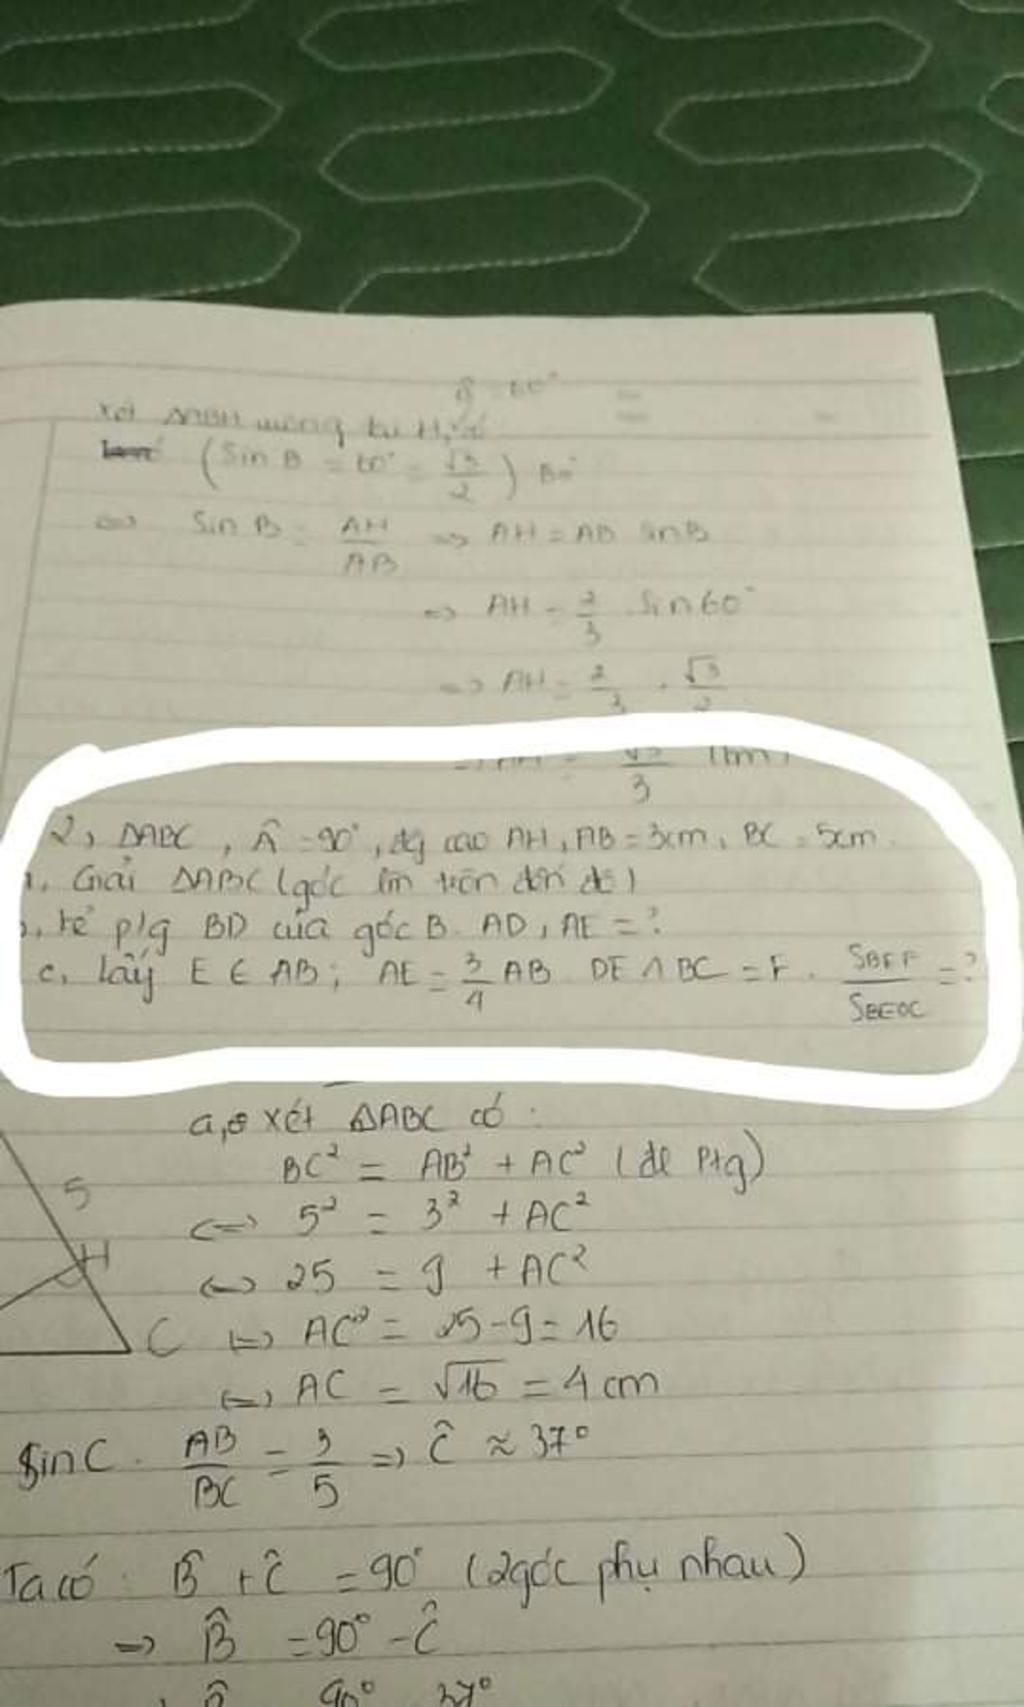 B̂ = 60°
Xét ΔABH vuông tại H, có
(Sin B = 60° = √3/2) B = 60°
<=> Sin B = AH/AB => AH = AB sinB
=> AH = 2/3 . Sin60°
=> AH = 2/3 . √3/2
√3/3 (cm)
2, ΔABC, Â = 90°, đg cao AH, AB = 3cm, BC = 5cm.
Giải ΔABC (góc làm tròn đến độ)
kẻ p/g BD của góc B. AD, AE = ?
c, lấy E ∈ AB; AE = 3/4 AB DE ∩ BC = F. SBEF/SBEDC = ?
a, xét ΔABC có:
BC² = AB² + AC² (đl Ptg)
<=> 5² = 3² + AC²
5
<=> 25 = 9 + AC²
H
C <=> AC² = 25-9 = 16
<=> AC = √16 = 4 cm
SinC = AB/BC = 3/5 => Ĉ ≈ 37°
Ta có: B̂ + Ĉ = 90° (2 góc phụ nhau)
=> B̂ = 90° - Ĉ
90° 37°